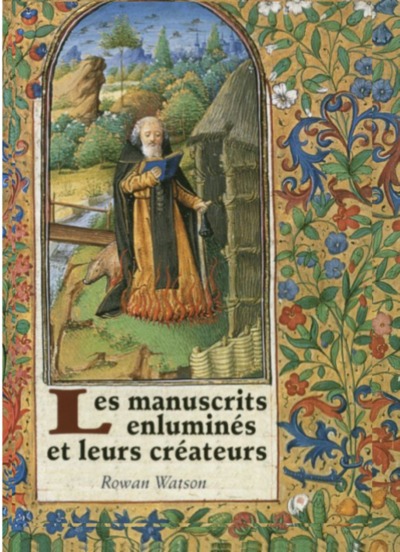 Les manuscrits
enluminés
et leurs créateurs
Rowan Watson